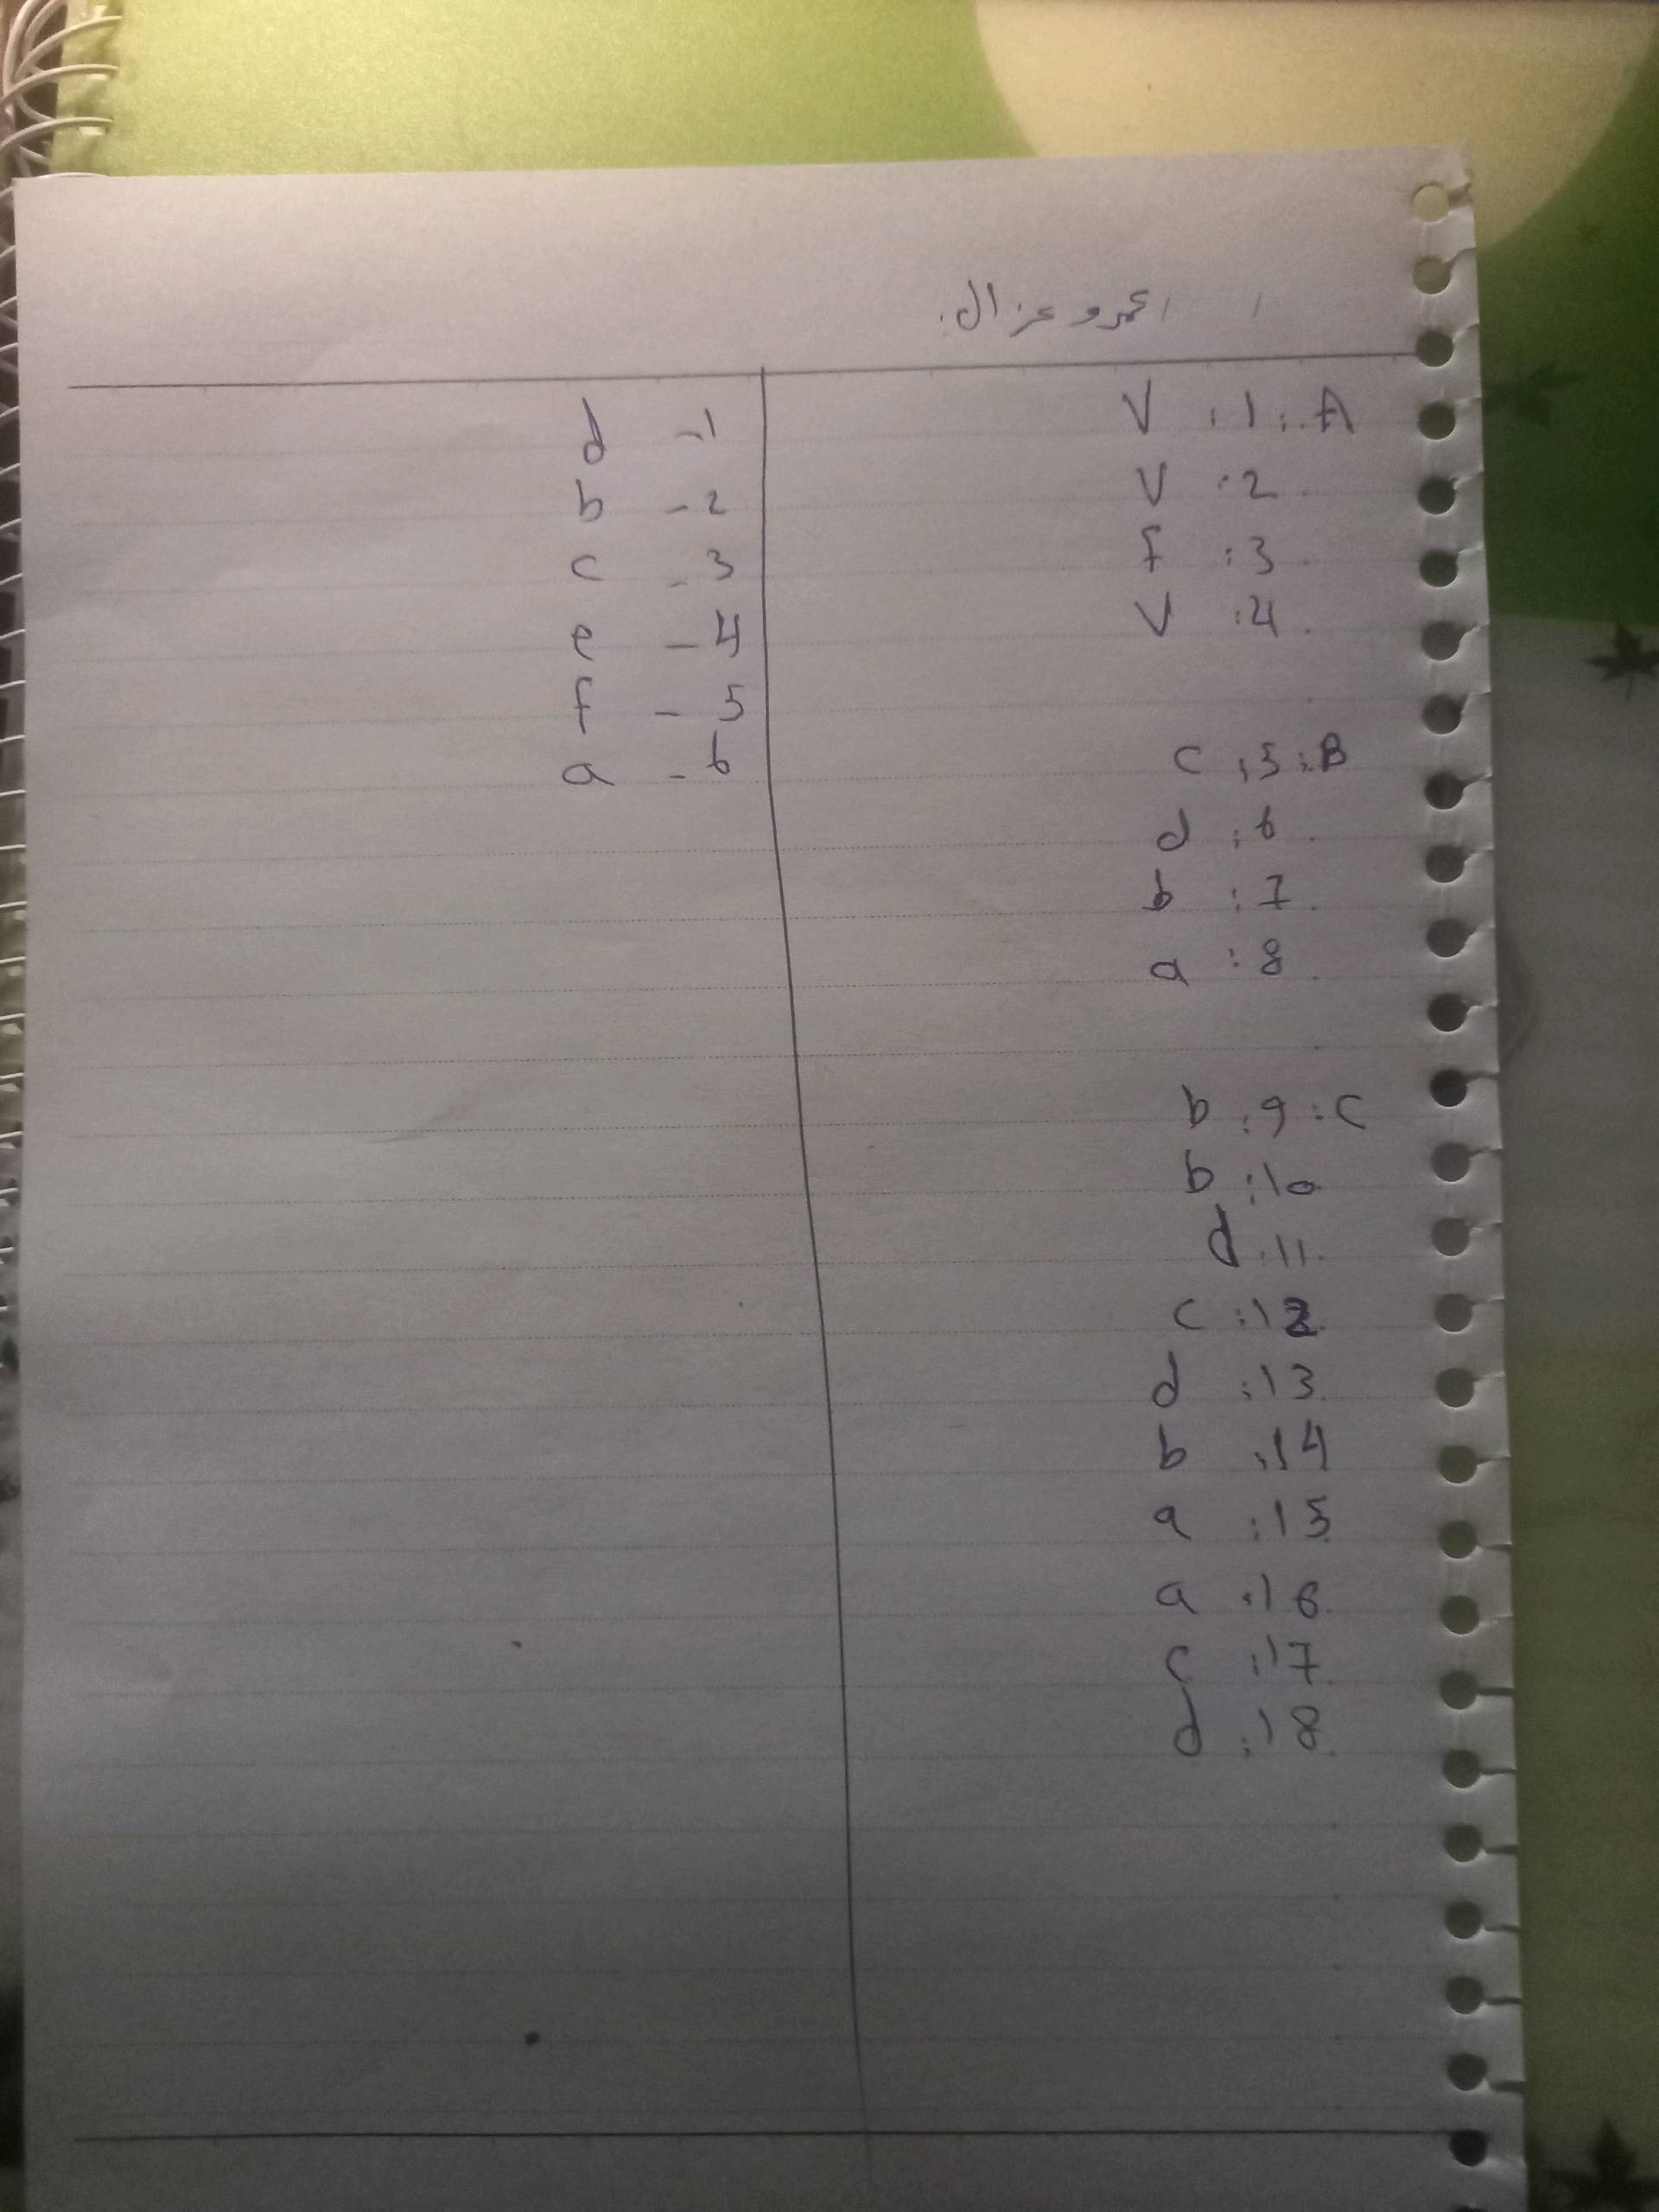 عمرو عزال
A: 1: V
2: V
3: f
4: V
B: 5: c
6: d
7: b
8: a
C: 9: b
10: b
11: d
12: c
13: d
14: b
15: a
16: a
17: c
18: d
1- d
2- b
3- c
4- e
5- f
6- a